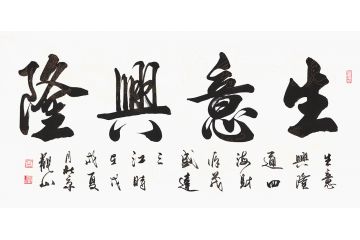 生意興隆
生意
興隆
通四
海財
源茂
盛達
三
江時
在戊
戌夏